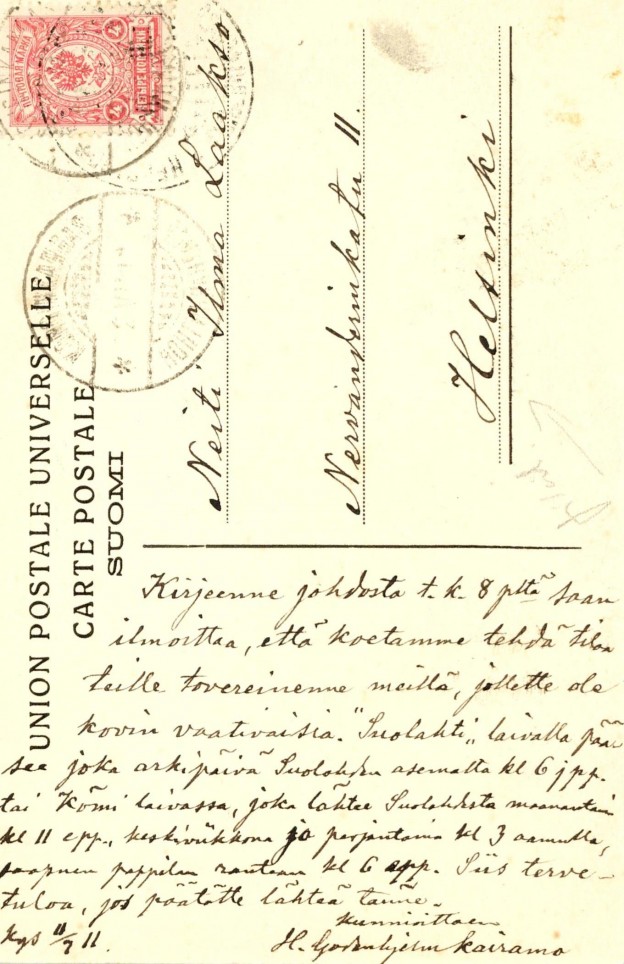 UNION POSTALE UNIVERSELLE
CARTE POSTALE
SUOMI
Neiti Irma Laakso
Nervanderinkatu 11.
Helsinki
Kirjeenne johdosta t.k. 8 pltä saan
ilmoittaa, että koetamme tehdä tilaa
teille tovereinenne meillä, jollette ole
kovin vaativaisia. "Suolahti" laivalla pää-
see joka arkipäivä Suolahden asemalta kl 6 jpp.
tai Kömi laivassa, joka lähtee Suolahdesta maanantain
kl 11 epp., keskiviikkona ja perjantaina kl 3 aamulla,
saapuen pappilan rantaan kl 6 epp. Siis terve-
tuloa, jos päätätte lähteä tänne.
Kunnioittaen
H. Godenhjelm Kairamo
Kgs 11/7 11.